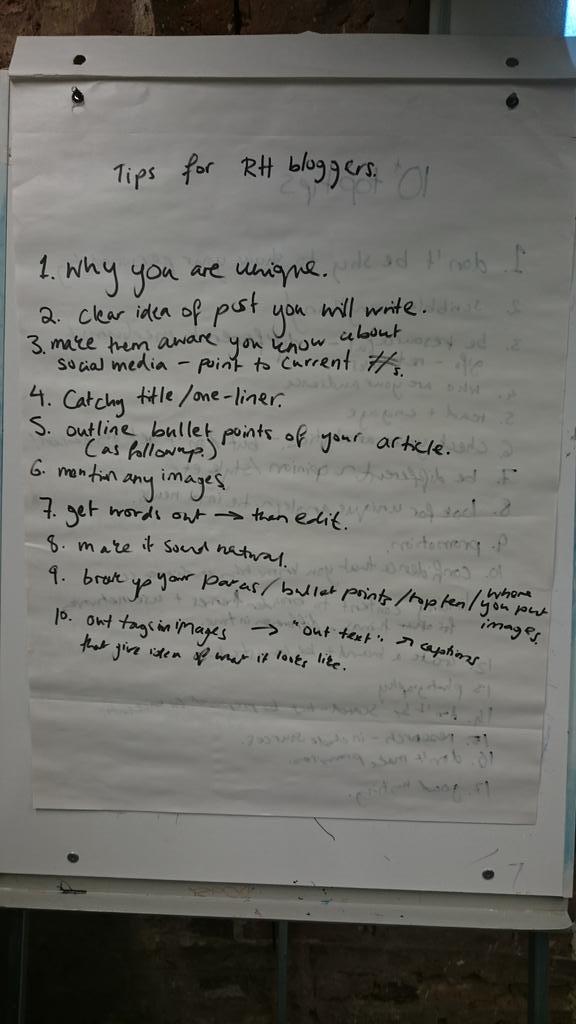 Tips for RH bloggers.
1. Why you are unique.
2. clear idea of post you will write.
3. make them aware you know about
social media - point to current #s.
4. Catchy title/one-liner.
5. outline bullet points of your article.
(as followup.)
6. mention any images
7. get words out → then edit.
8. make it sound natural.
9. break up your paras/bullet points/top ten/where
you put
images.
10. out tags in images → "out text" → captions
that give idea of what it looks like.